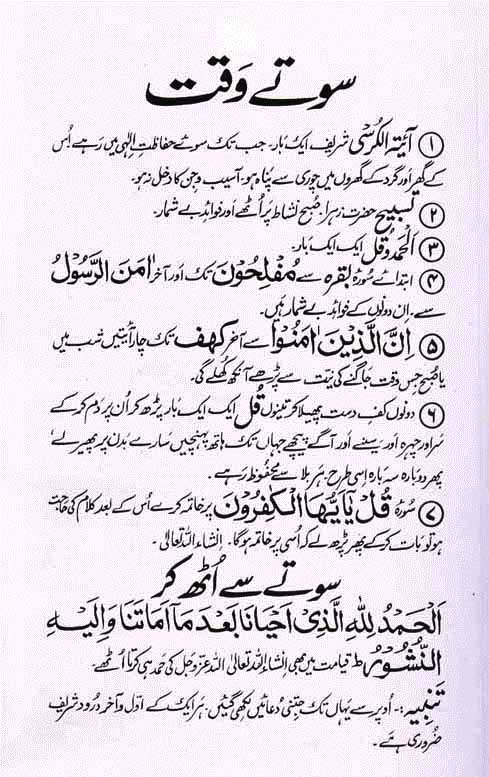 سوتے وقت
① آیۃ الکرسی شریف ایک بار۔ جب تک سوئے حفاظتِ الٰہی میں رہے اُس
کے گھر اور گرد کے گھروں میں چوری سے پناہ ہو۔ آسیب و جن کا دخل نہ ہو۔
② تسبیح حضرت زہرا۔ صُبح نشاط پر اُٹھے اور فوائد بے شمار۔
③ اَلحمد و قل ایک ایک بار۔
④ ابتدائے سورۂ بقرہ سے مُفْلِحُوْنَ تک اور آخر اٰمَنَ الرَّسُوْلُ
سے۔ ان دونوں کے فوائد بے شمار ہیں۔
⑤ اِنَّ الَّذِیْنَ اٰمَنُوْا سے آخر کہف تک چار آیتیں شب میں
یا صُبح جس وقت جاگنے کی نیت سے پڑھے آنکھ کھلے گی۔
⑥ دونوں کفِ دست پھیلا کر تینوں قُل ایک ایک بار پڑھ کر اُن پر دَم کر کے
سر اور چہرہ اور سینے اور آگے پیچھے جہاں تک ہاتھ پہنچیں سارے بدن پر پھیر لے،
پھر دوبارہ سہ بارہ اِسی طرح۔ ہر بلا سے محفوظ رہے۔
⑦ سورۂ قُلْ یٰاَیُّہَا الْکٰفِرُوْنَ پر خاتمہ کرے اُس کے بعد کلام کی حاجت
ہو تو بات کر کے پھر پڑھ لے کہ اُسی پر خاتمہ ہوگا۔ اِنشاءاللہ تعالیٰ۔
سوتے سے اُٹھ کر
اَلْحَمْدُ لِلّٰہِ الَّذِیْ اَحْیَانَا بَعْدَ مَآ اَمَاتَنَا وَاِلَیْہِ
النُّشُوْرُ ط قیامت میں بھی اِنشاءاللہ تعالیٰ اللہ عزوجل کی حمد ہی کرتا اُٹھے۔
تنبیہ:۔ اُوپر سے یہاں تک جتنی دُعائیں لکھی گئیں۔ ہر ایک کے اوّل و آخر دُرود شریف
ضروری ہے۔